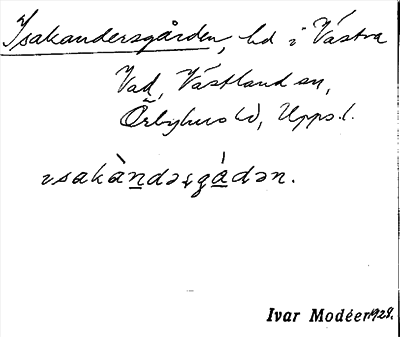 Isakandersgården, bd i Västra
Vad, Västland sn,
Örbyhus hd, Upps. l.
ısakàndəṣgádən.
Ivar Modéer 1928.